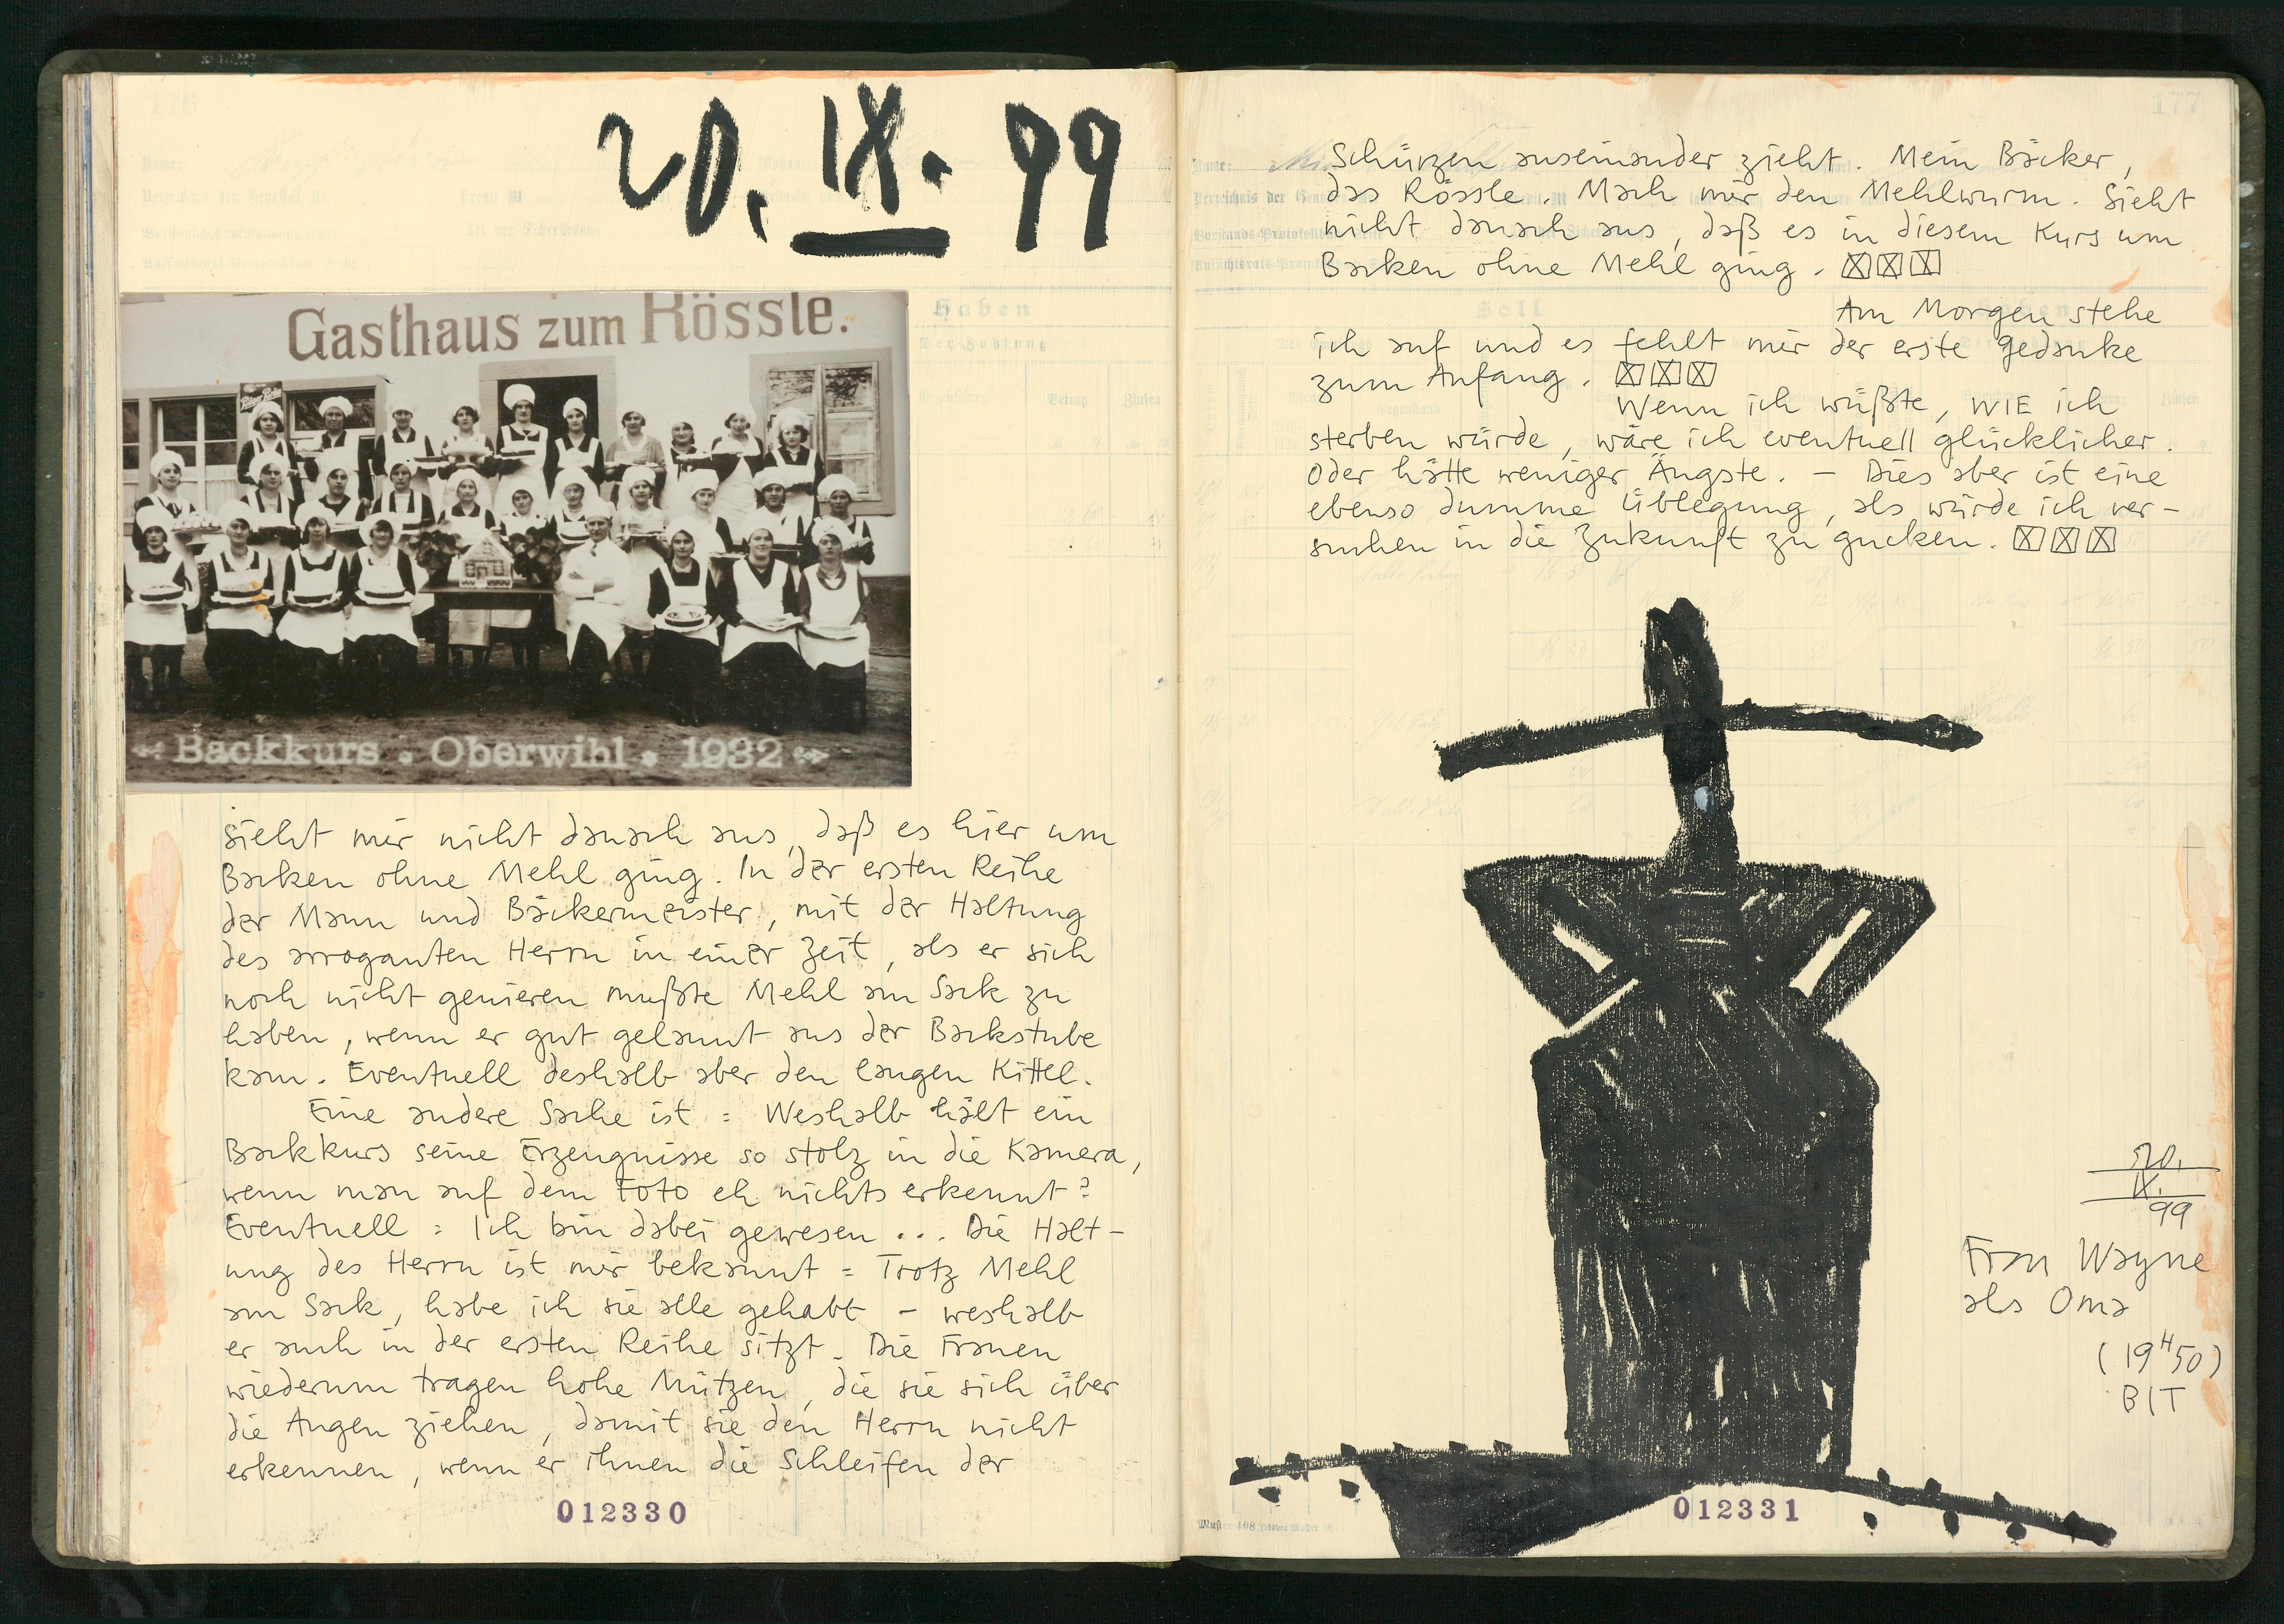 20. IX. 99
Gasthaus zum Rössle.
Backkurs • Oberwihl • 1932
Sieht mir nicht danach aus, daß es hier um
Backen ohne Mehl ging. In der ersten Reihe
der Mann und Bäckermeister, mit der Haltung
des arroganten Herrn in einer Zeit, als er sich
noch nicht genieren mußte Mehl am Sack zu
haben, wenn er gut gelaunt aus der Backstube
kam. Eventuell deshalb aber den langen Kittel.
Eine andere Sache ist = Weshalb hält ein
Backkurs seine Erzeugnisse so stolz in die Kamera,
wenn man auf dem Foto eh nichts erkennt?
Eventuell = Ich bin dabei gewesen ... Die Halt-
ung des Herrn ist mir bekannt = Trotz Mehl
am Sack, habe ich sie alle gehabt – weshalb
er auch in der ersten Reihe sitzt. Die Frauen
wiederum tragen hohe Mützen, die sie sich über
die Augen ziehen, damit sie den Herrn nicht
erkennen, wenn er ihnen die Schleifen der
012330
177
Schürzen auseinander zieht. Mein Bäcker,
das Rössle. Mach mir den Mehlwurm. Sieht
nicht danach aus, daß es in diesem Kurs um
Backen ohne Mehl ging. ☒☒☒
Am Morgen stehe
ich auf und es fehlt mir der erste Gedanke
zum Anfang. ☒☒☒
Wenn ich wüßte, WIE ich
sterben würde, wäre ich eventuell glücklicher.
Oder hätte weniger Ängste. – Dies aber ist eine
ebenso dumme Üblegung, als würde ich ver-
suchen in die Zukunft zu gucken. ☒☒☒
20.
IX.
99
Frau Wayne
als Oma
(19H50)
BIT
012331